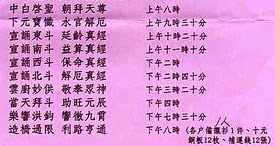 中白啓聖 朝拜天尊 上午八時
下元寶懺 水官解厄 上午八時三十分
宣誦東斗 延齡真經 上午十時二十分
宣誦南斗 益算真經 上午十一時十分
宣誦西斗 保命真經 下午二時
宣誦北斗 解厄真經 下午二時四十分
雲廚妙供 敬奉眾神 下午三時三十分
當天拜斗 助旺元辰 下午四時
樂響洪鈞 響徹九霄 下午七時三十分
造橋過限 利路亨通 下午八時(各戶備襯衫1件、十元
銅板12枚、補運錢12張)